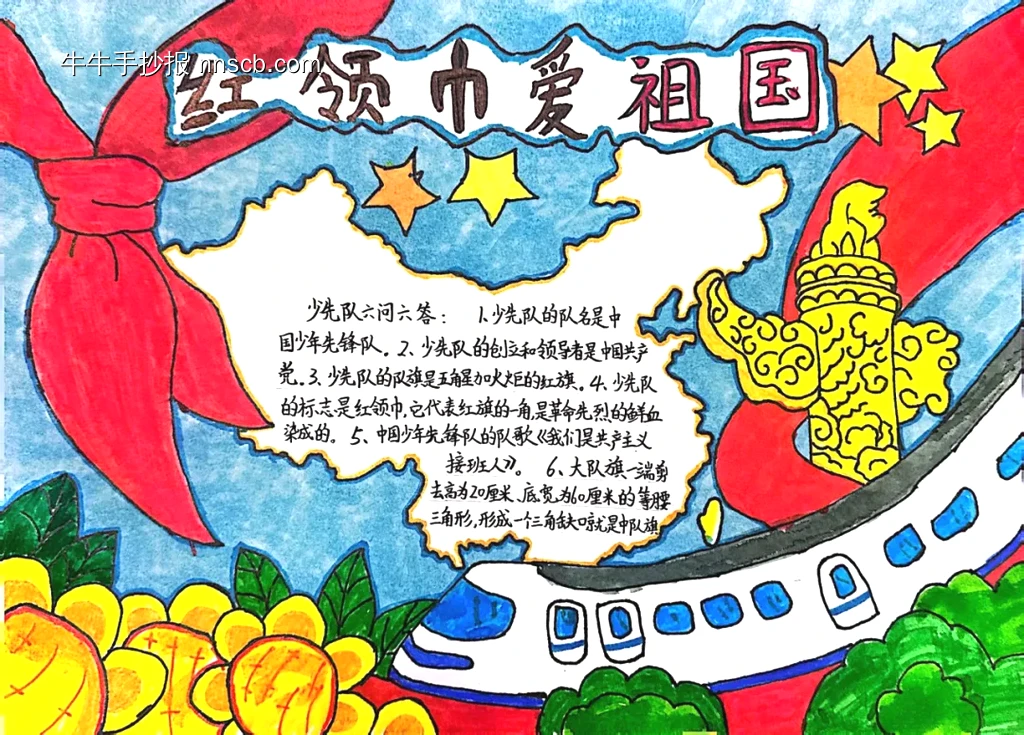 牛牛手抄报 nnscb.com
红领巾爱祖国
少先队六问六答： 1.少先队的队名是中
国少年先锋队。2、少先队的创立和领导者是中国共产
党。3、少先队的队旗是五角星加火炬的红旗。4、少先队
的标志是红领巾，它代表红旗的一角，是革命先烈的鲜血
染成的。5、中国少年先锋队的队歌《我们是共产主义
接班人》。 6、大队旗一端剪
去高为20厘米、底宽为60厘米的等腰
三角形，形成一个三角缺口就是中队旗